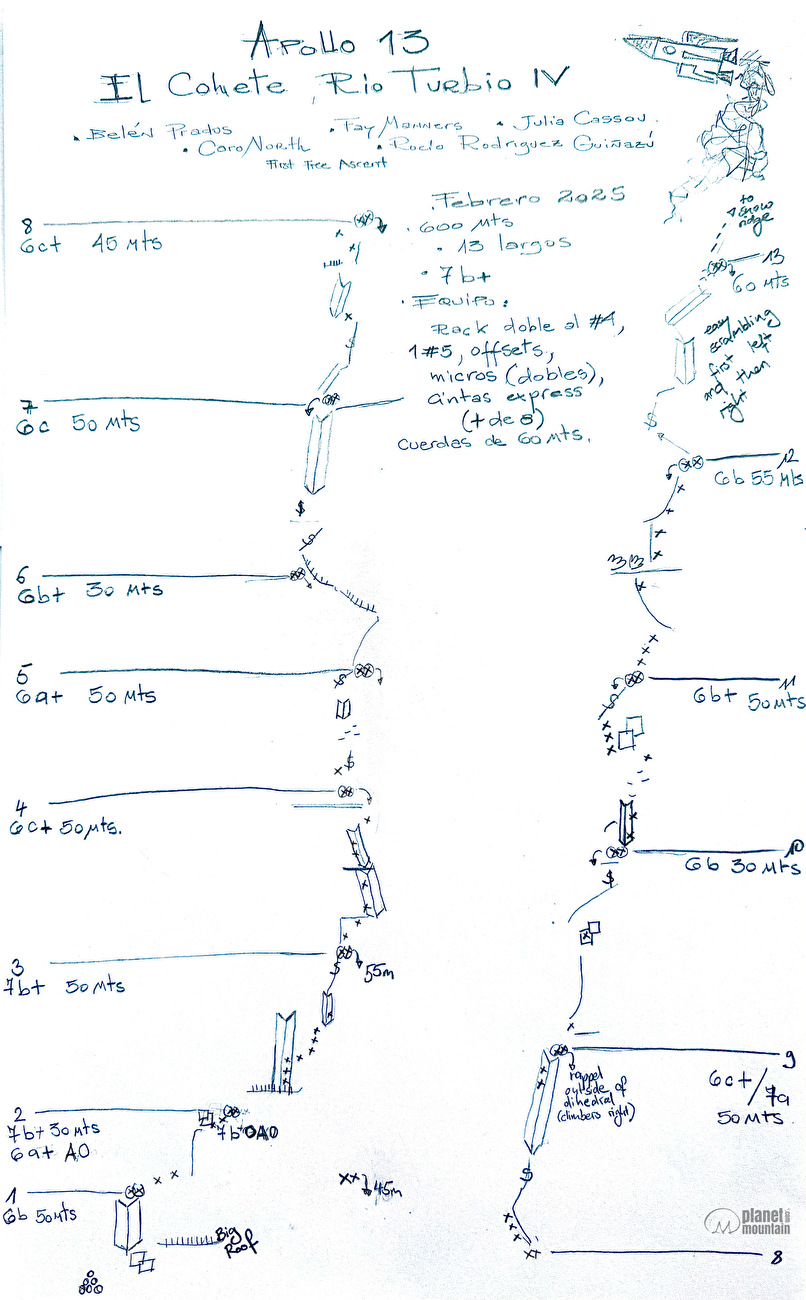 APOLLO 13
EL COHETE, RIO TURBIO IV
• BELÉN PRADOS
• FAY MANNERS
• JULIA CASSOU.
• CARO NORTH
• ROCÍO RODRIGUEZ GUIÑAZÚ
FIRST FREE ASCENT
. FEBRERO 2025
• 600 MTS
• 13 largos
• 7b+
• EQUIPO:
Rack doble al #4,
1#5, offsets,
micros (dobles),
cintas express
(+ de 8)
Cuerdas de 60 MTS.
8
6c+ 45 MTS
7
6c 50 MTS
6
6b+ 30 MTS
5
6a+ 50 MTS
4
6c+ 50 MTS.
3
7b+ 50 MTS
55m
2
7b+ 30 MTS
6a+ A0
7b+ OA0
1
6b 50 MTS
Big
Roof
45m
to
snow
ridge
13
60 MTS
easy
scrambling
first left
and then
right
12
6b 55 Mts
11
6b+ 50 MTS
10
6b 30 MTS
9
6c+/7a
50 MTS.
rappel
outside of
dihedral
(climbers right)
8
planet
mountain